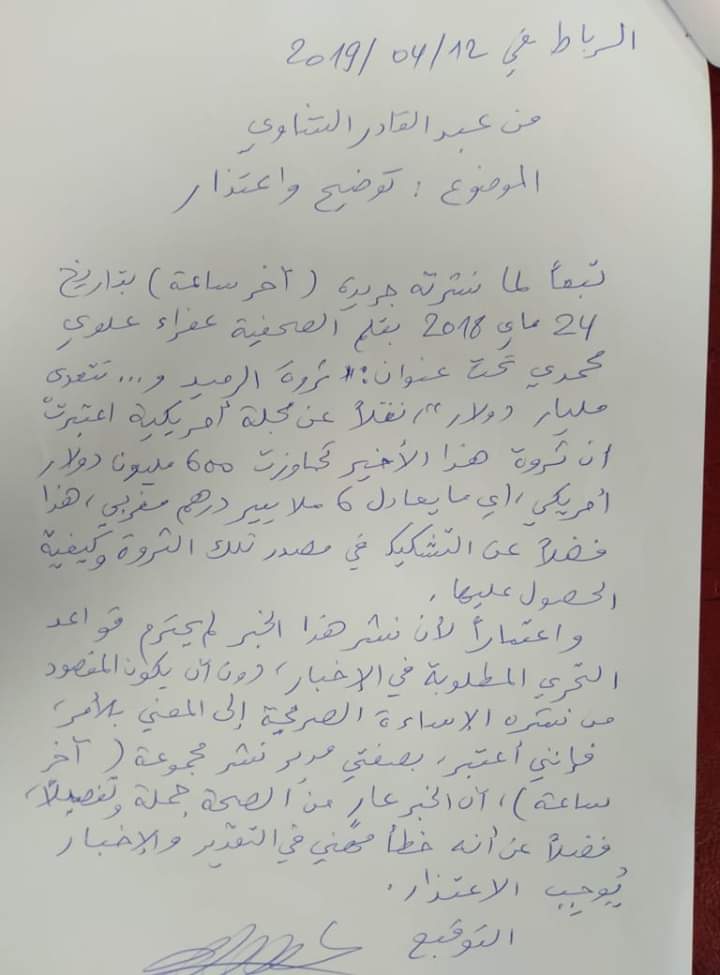 الرباط في 12/ 04/ 2019
من عبد القادر الشاوي
الموضوع : توضيح واعتذار
تبعاً لما نشرته جريدة (آخر ساعة) بتاريخ
24 ماي 2018 بقلم الصحفية عفراء علوي
محمدي تحت عنوان: "ثروة الرميد و... تتعدى
مليار دولار"، نقلاً عن مجلة أمريكية اعتبرتْ
أن ثروة هذا الأخير تجاوزت 600 مليون دولار
أمريكي، أي ما يعادل 6 ملايير درهم مغربي، هذا
فضلاً عن التشكيك في مصدر تلك الثروة وكيفية
الحصول عليها.
واعتباراً لأن نشر هذا الخبر لم يحترم قواعد
التحري المطلوبة في الإخبار، دون أن يكون المقصود
من نشره الإساءة الصريحة إلى المعني بالأمر،
فإنني أعتبر، بصفتي مدير نشر مجموعة (آخر
ساعة)، أن الخبر عارٍ من الصحة جملة وتفصيلاً،
فضلاً عن أنه خطأ مهني في التقدير والإخبار
يُوجِب الاعتذار.
التوقيع